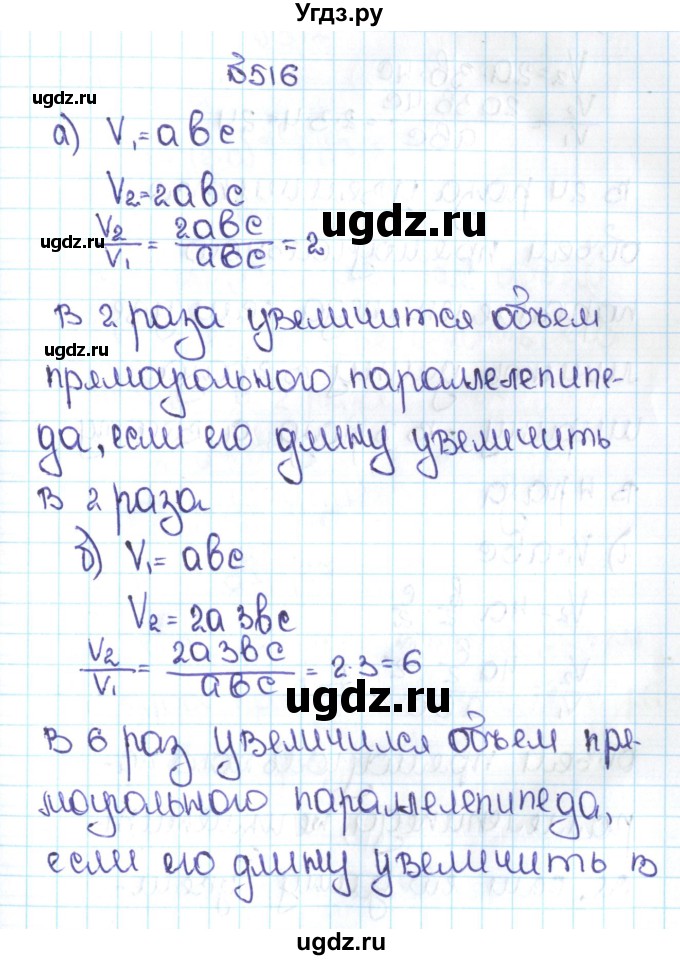 Угдз.ру
№516
ugdz.ru
а) V₁=aвc
V₂=2aвc
ugdz.ru
V₂/V₁ = 2aвc/aвc = 2
ugdz.ru
В 2 раза увеличится объем
ugdz.ru
прямоугольного параллелепипе-
да, если его длину увеличить
в 2 раза
б) V₁= aвc
V₂= 2a 3вc
V₂/V₁ = 2a 3вc/aвc = 2·3=6
ugdz.ru
В 6 раз увеличился объем пря-
моугольного параллелепипеда,
если его длину увеличить в
ugdz.ru